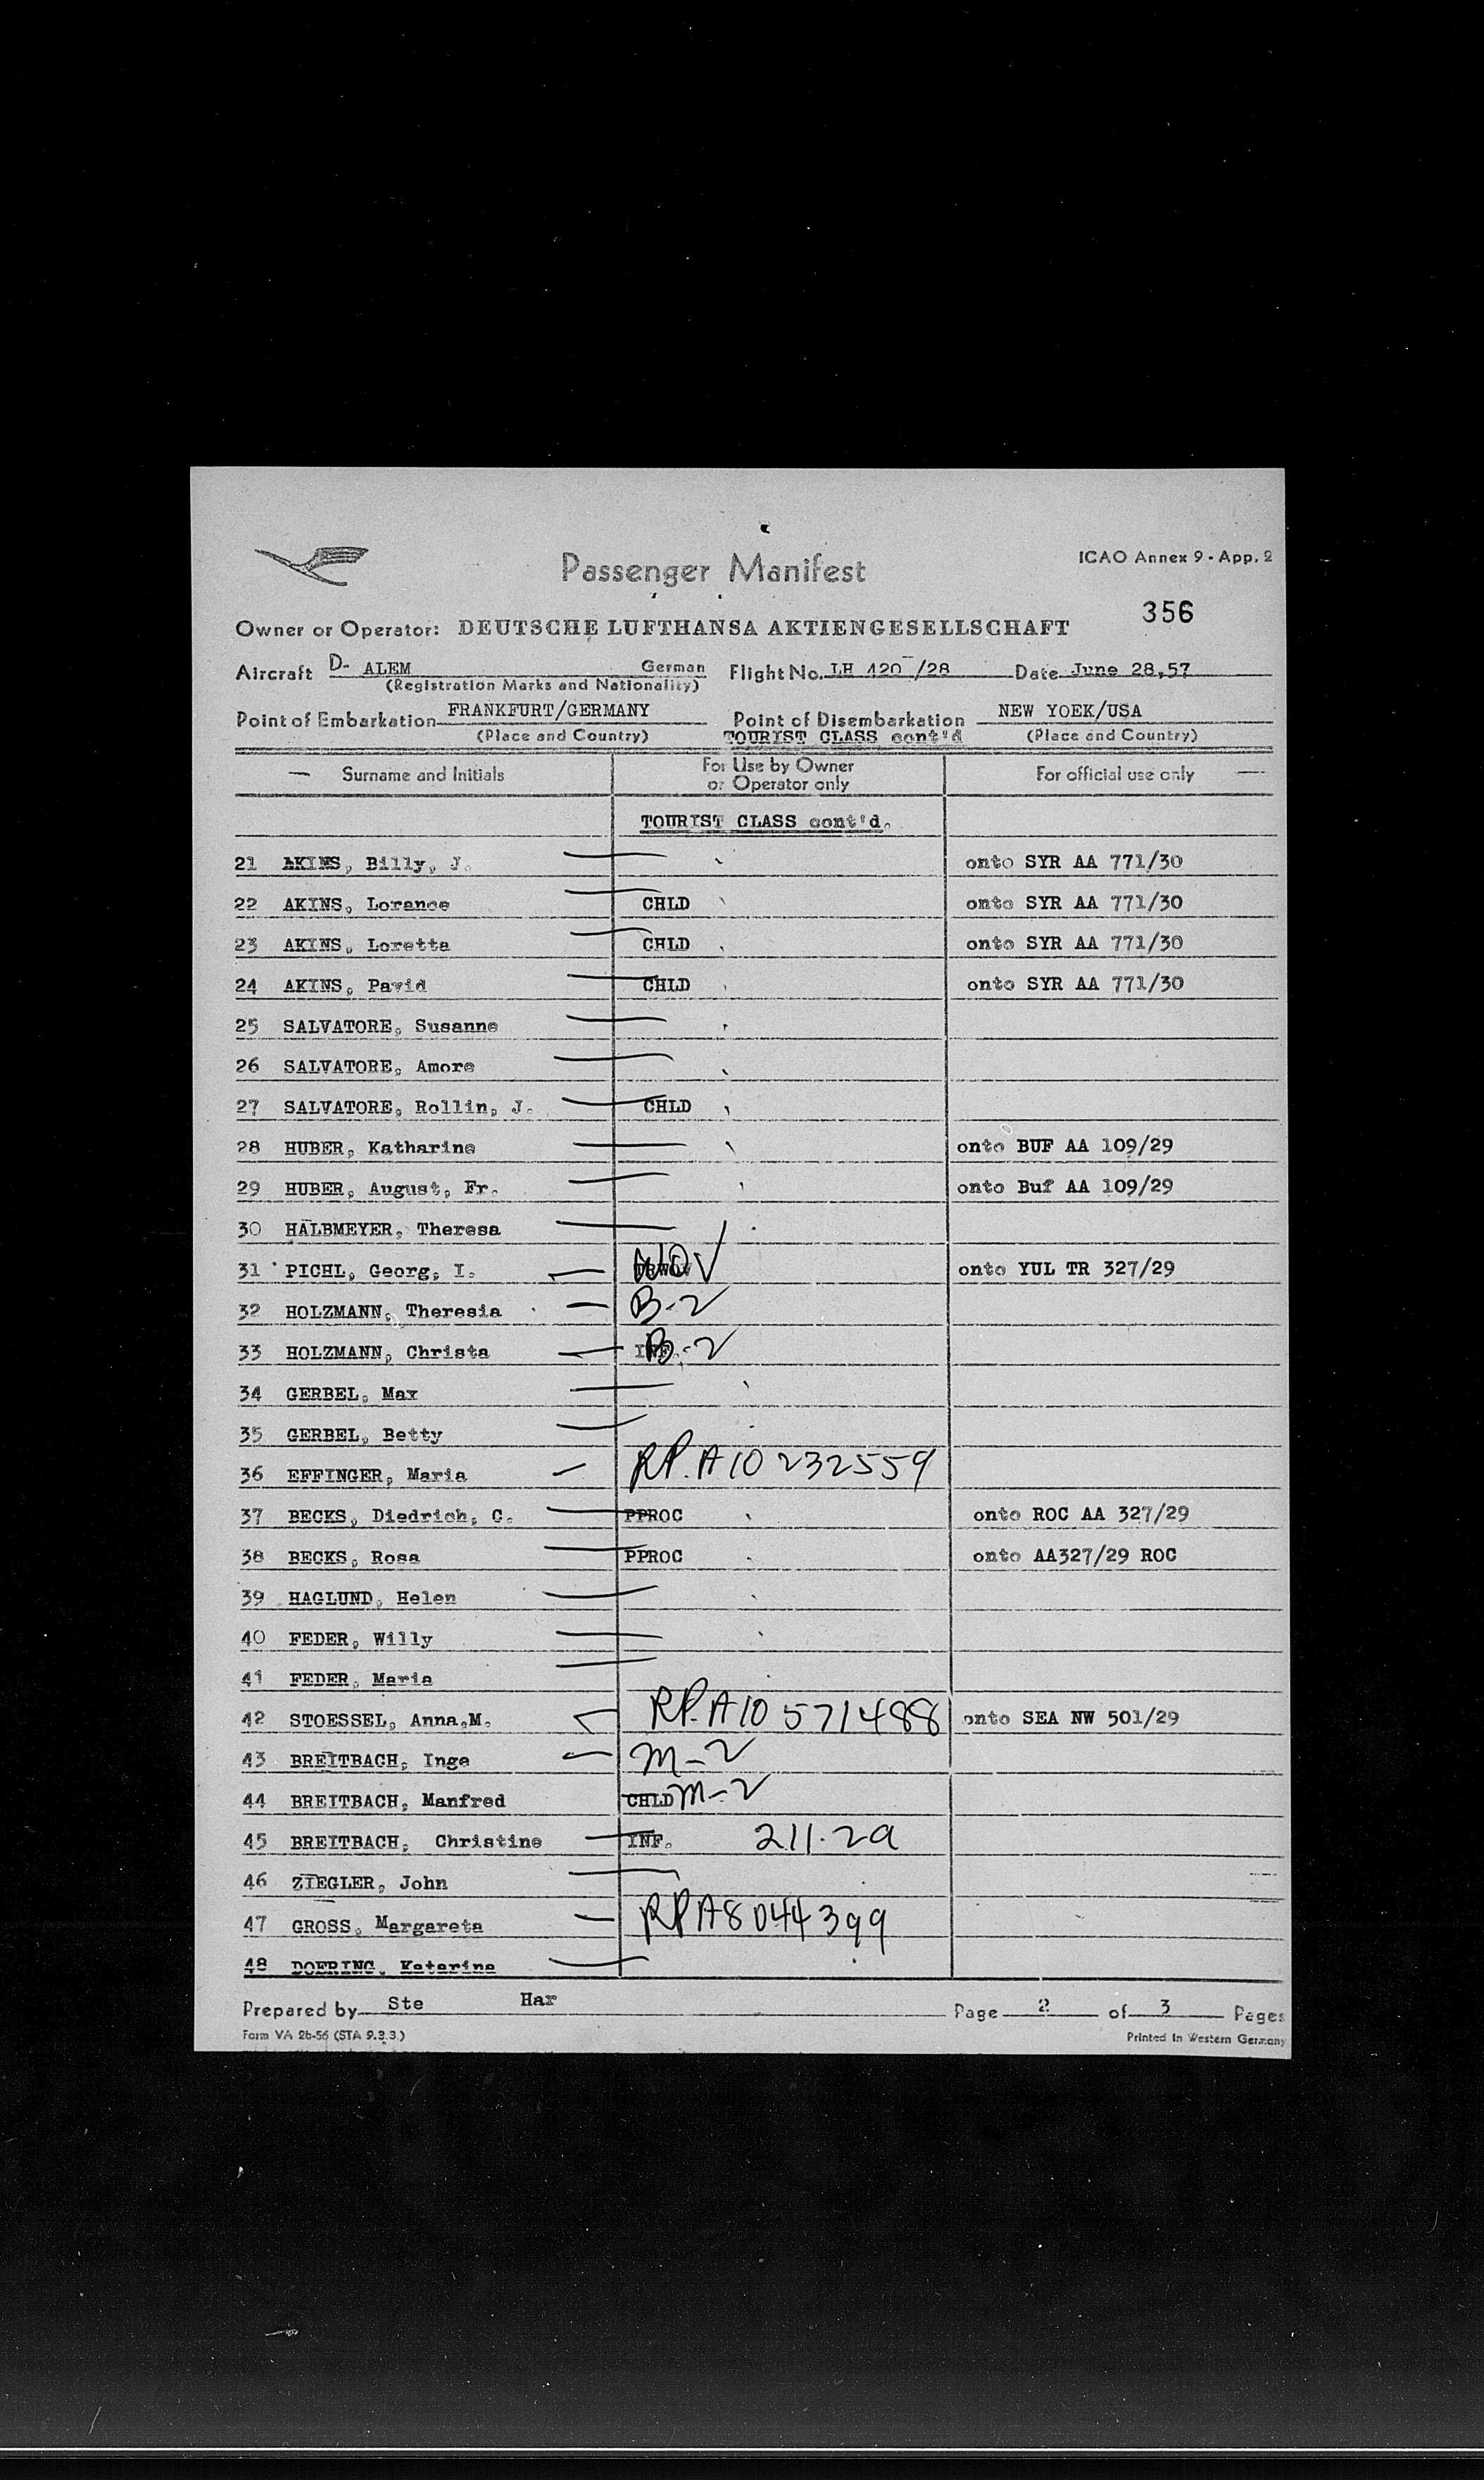 Passenger Manifest
ICAO Annex 9 - App. 2
356
Owner or Operator: DEUTSCHE LUFTHANSA AKTIENGESELLSCHAFT
Aircraft D- ALEM German Flight No. LH 420 /28 Date June 28,57
(Registration Marks and Nationality)
Point of Embarkation FRANKFURT/GERMANY Point of Disembarkation NEW YOEK/USA
(Place and Country) TOURIST CLASS cont'd (Place and Country)
Surname and Initials For Use by Owner or Operator only For official use only
TOURIST CLASS cont'd.
21 AKINS, Billy, J. onto SYR AA 771/30
22 AKINS, Lorance CHLD onto SYR AA 771/30
23 AKINS, Loretta CHLD onto SYR AA 771/30
24 AKINS, Pavid CHLD onto SYR AA 771/30
25 SALVATORE, Susanne
26 SALVATORE, Amore
27 SALVATORE, Rollin, J. CHLD
28 HUBER, Katharine onto BUF AA 109/29
29 HUBER, August, Fr. onto Buf AA 109/29
30 HALBMEYER, Theresa
31 PICHL, Georg, I. onto YUL TR 327/29
32 HOLZMANN, Theresia B-2
33 HOLZMANN, Christa INF. B-2
34 GERBEL, Max
35 GERBEL, Betty
36 EFFINGER, Maria RP. A10 232559
37 BECKS, Diedrich, C. PPROC onto ROC AA 327/29
38 BECKS, Rosa PPROC onto AA327/29 ROC
39 HAGLUND, Helen
40 FEDER, Willy
41 FEDER, Maria
42 STOESSEL, Anna,M. RP. A10 571488 onto SEA NW 501/29
43 BREITBACH, Inge M-2
44 BREITBACH, Manfred CHLD M-2
45 BREITBACH, Christine INF. 211.2a
46 ZIEGLER, John
47 GROSS, Margareta RP A8 044399
48 DOERING, Katarina
Prepared by Ste Har Page 2 of 3 Pages
Form VA 2b-56 (STA 9.3.3) Printed in Western Germany